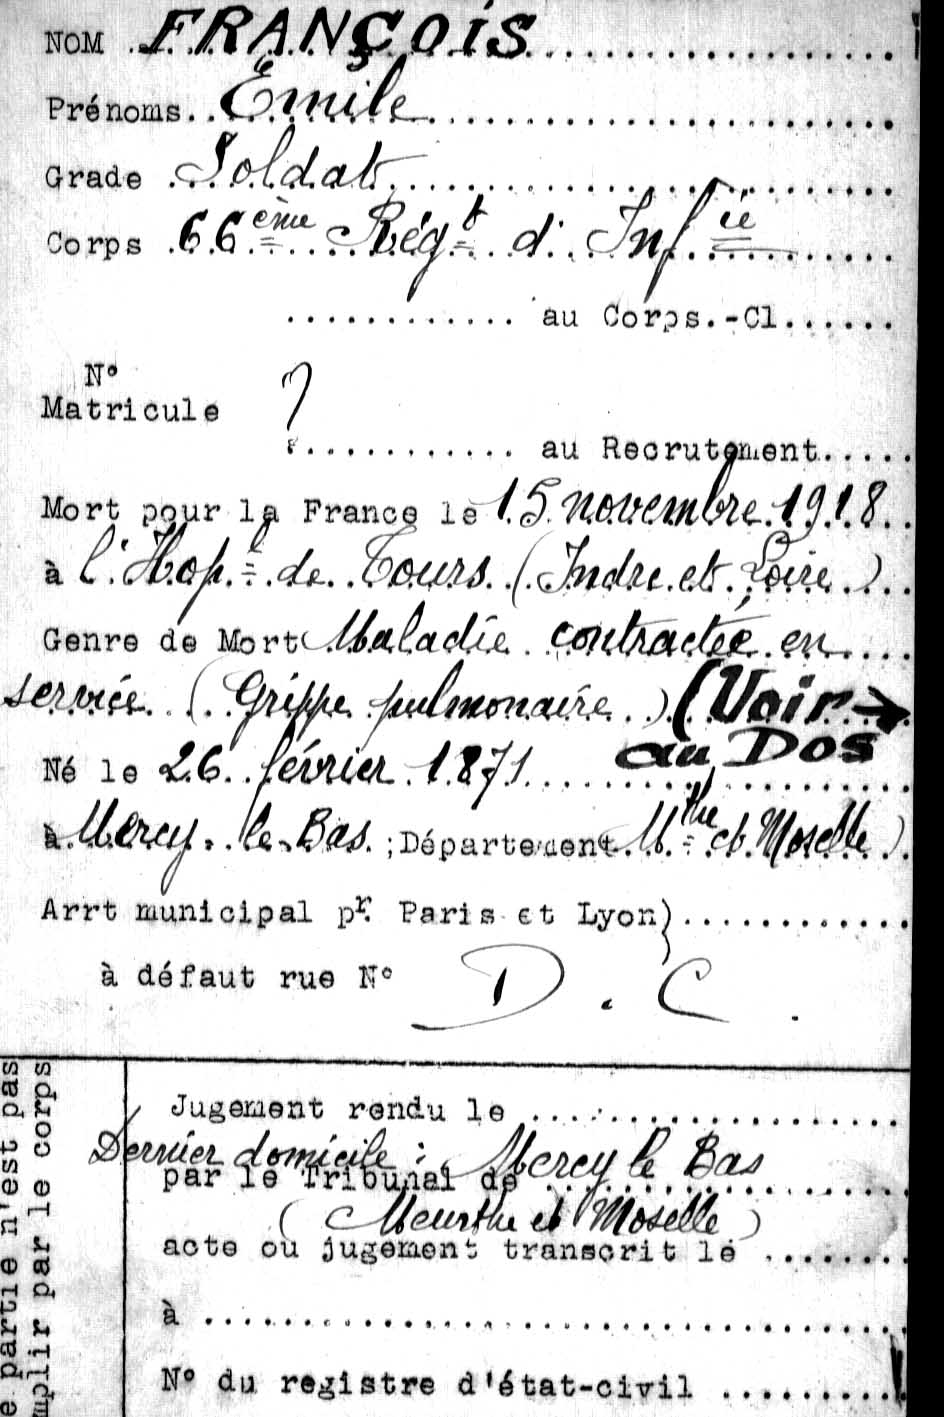 NOM FRANÇOIS
Prénoms Émile
Grade Soldat
Corps 66ème Régt d'Infie
au Corps.-Cl
N°
Matricule ?
au Recrutement
Mort pour la France le 15 novembre 1918
à l'Hopl de Tours (Indre et Loire)
Genre de Mort Maladie contractée en
service (Grippe pulmonaire) (Voir →
au Dos
Né le 26 février 1871
à Mercy-le-Bas ; Département Mthe et Moselle)
Arrt municipal pr. Paris et Lyon)
à défaut rue N° D. C.
Jugement rendu le
Dernier domicile : Mercy le Bas
par le Tribunal de
(Meurthe et Moselle)
acte ou jugement transcrit le
à
N° du registre d'état-civil
e partie n'est pas
mplir par le corps